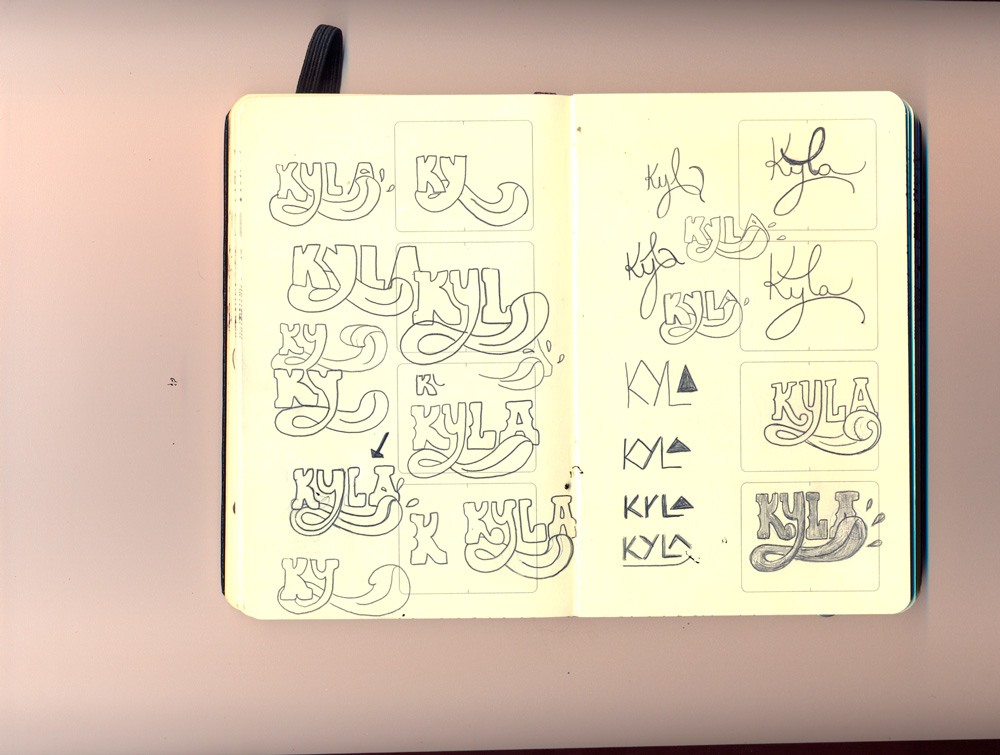 KYLA
KY
KYLA
KYL
KY
KY
KYLA
KYLA
K KYLA
KY
Kyla
Kyla
KYLA
Kyla
Kyla
KYLA
KYLA
KYLA
KYLA
KYLA
KYLA
KYLA